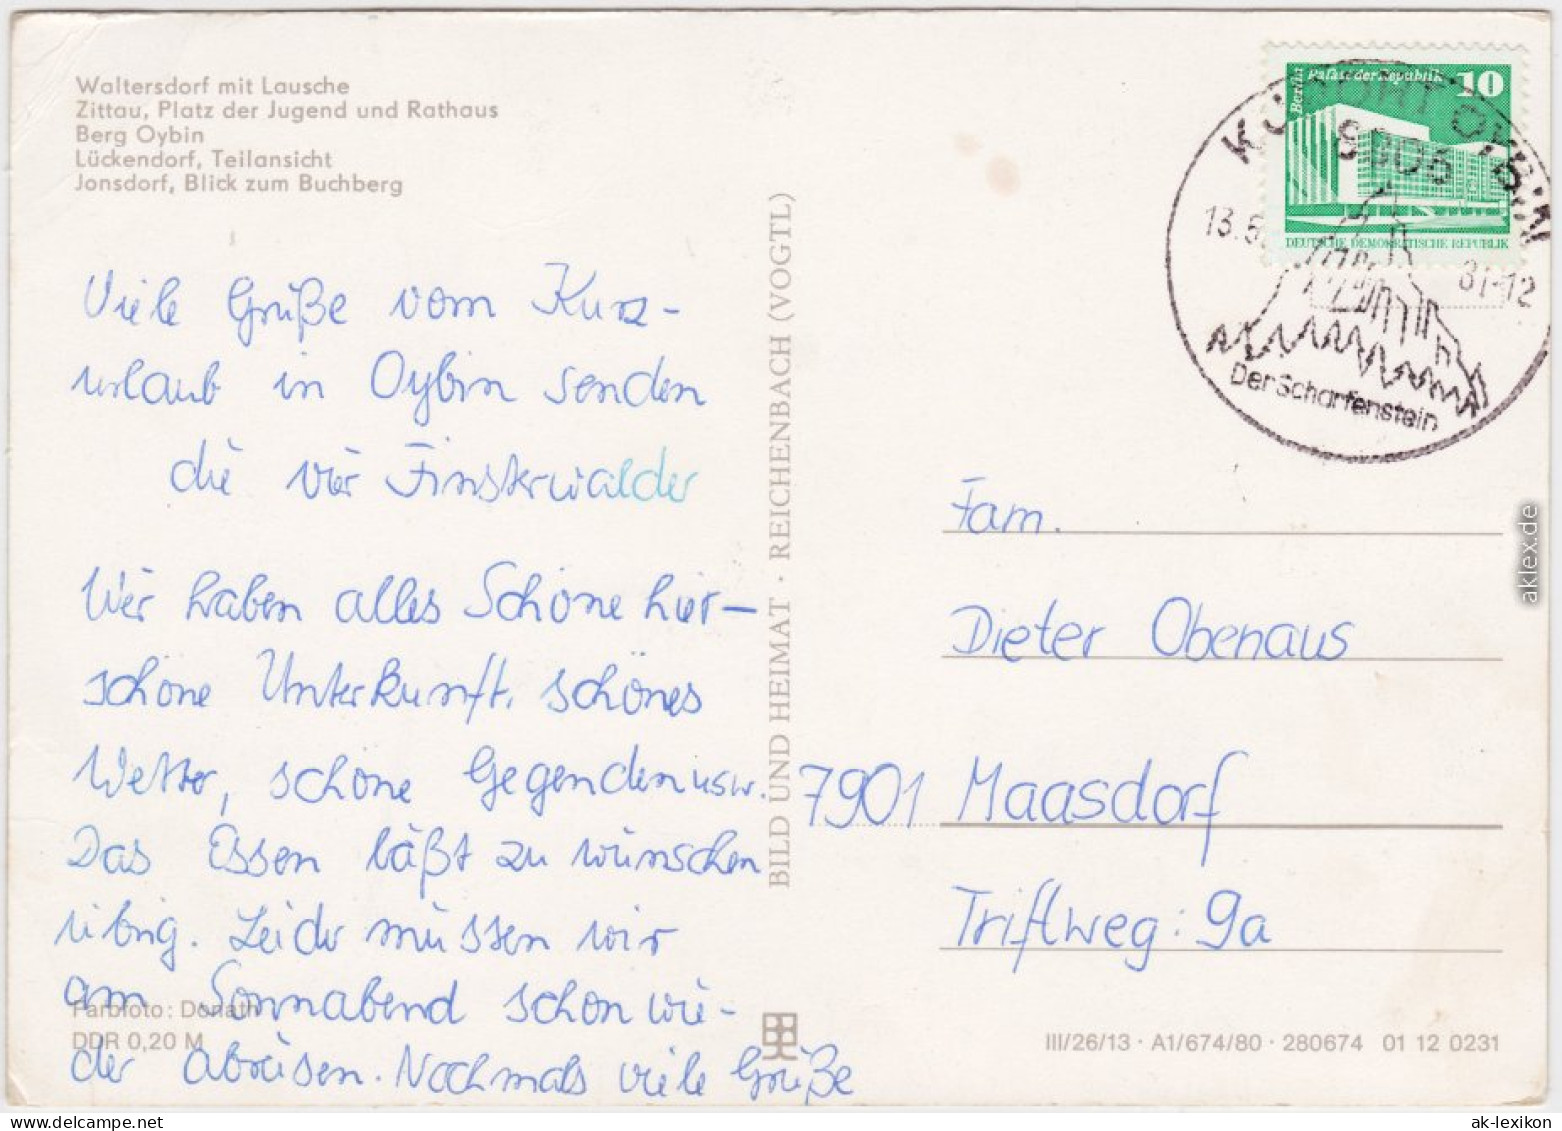 Waltersdorf mit Lausche
Zittau, Platz der Jugend und Rathaus
Berg Oybin
Lückendorf, Teilansicht
Jonsdorf, Blick zum Buchberg
Viele Grüße vom Kurz-
urlaub in Oybin senden
die vier Finsterwalder
Wir haben alles Schöne hier –
schöne Unterkunft, schönes
Wetter, schöne Gegenden usw.
Das Essen läßt zu wünschen
übrig. Leider müssen wir
am Sonnabend schon wie-
der abreisen. Nochmals viele Grüße
Farbfoto: Donath
DDR 0,20 M
BILD UND HEIMAT · REICHENBACH (VOGTL)
Berlin Palast der Republik 10
DEUTSCHE DEMOKRATISCHE REPUBLIK
KURORT OYBIN
8806
13.5. 81-12
Der Scharfenstein
Fam.
Dieter Obenaus
7901 Maasdorf
Triftweg: 9a
III/26/13 · A1/674/80 · 280674 01 12 0231
aklex.de
ak-lexikon